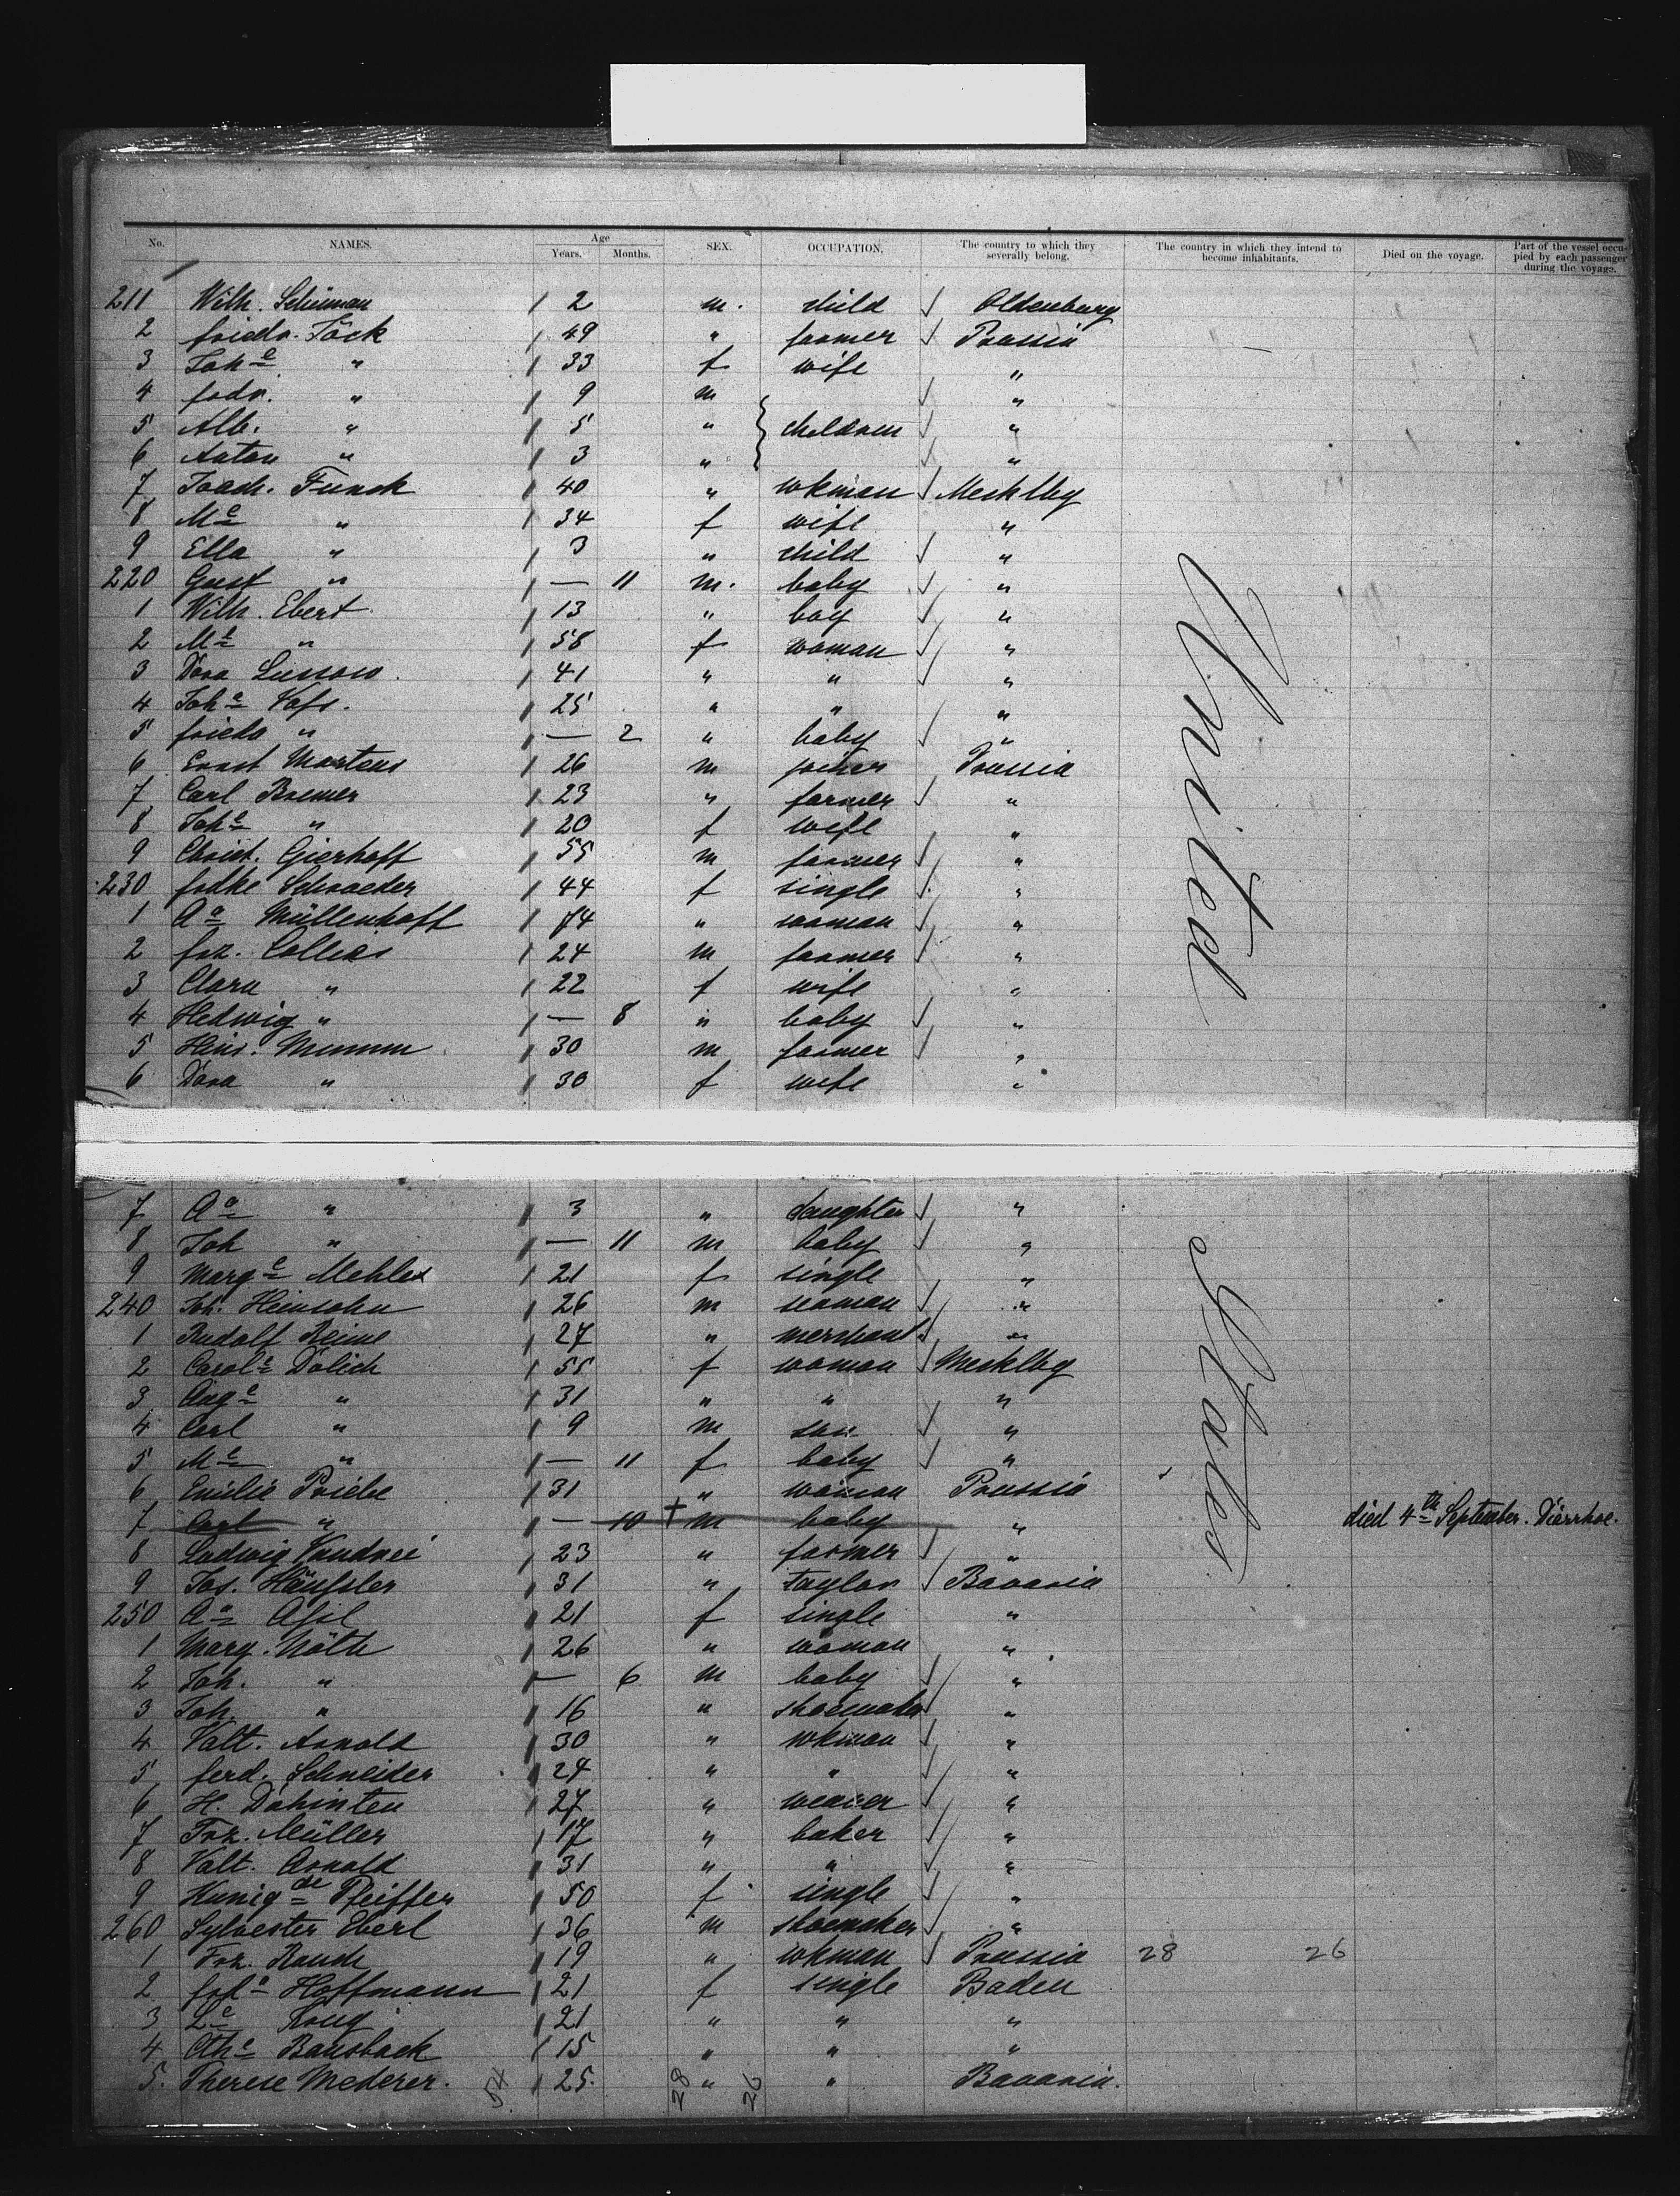 No. NAMES. Age Years. Months. SEX. OCCUPATION. The country to which they severally belong. The country in which they intend to become inhabitants. Died on the voyage. Part of the vessel occupied by each passenger during the voyage.
211 Wilh. Schüman 2 m. child Oldenburg
2 friedr. Töck 49 " farmer Prussia
3 Joh e " 33 f wife "
4 frdr. " 9 m "
5 Alb. " 5 " children "
6 Anton " 3 " "
7 Joach. Funck 40 " wkman Mecklbg
8 M e " 34 f wife "
9 Ella " 3 " child "
220 Gust " — 11 m. baby "
1 Wilh. Ebert 13 " boy "
2 M e " 58 f woman "
3 Dora Lussow. 41 " " "
4 Joh a Vofs. 25 " " "
5 frieda " — 2 " baby "
6 Ernst Martens 26 m joiner Prussia
7 Carl Bremer 23 " farmer "
8 Joh e " 20 f wife "
9 Christ. Gierhoff 55 m farmer "
230 frdke Schroeder 44 f single "
1 A a Müllenhoff 74 " woman "
2 frz. Collies 24 m farmer "
3 Clara " 22 f wife "
4 Hedwig " — 8 " baby "
5 Heinr. Mumm 30 m farmer "
6 Dora " 30 f wife "
7 A a " 3 " daughter "
8 Joh " — 11 m baby "
9 Marg e Mehler 21 f single "
240 Joh. Heinsohn 26 m seaman "
1 Rudolf Reime 27 " merchant "
2 Carol e Dolich 55 f woman Mecklbg
3 Aug e " 31 " " "
4 Carl " 9 m son "
5 M e " — 11 f baby "
6 Emilie Priebe 31 " woman Prussia
7 Carl " — 10 † m baby " died 4th September. Diarrhoe.
8 Ludwig Vandrei 23 " farmer "
9 Jos. Häufsler 31 " taylor Bavaria
250 A a 21 f single "
1 Marg. Nöth 26 " woman "
2 Joh. " — 6 m baby "
3 Joh. " 16 " shoemaker "
4 Valt. Arnold 30 " wkman "
5 ferd. Schneider 24 " " "
6 H. Dahinten 27 " weaver "
7 Frz. Müller 17 " baker "
8 Valt. Arnold 31 " " "
9 Kunig de Pfeiffer 50 f single "
260 Sylvester Eberl 36 m shoemaker "
1 Frz. Rauch 19 " wkman Prussia 28 26
2 Hoffmann 21 f single Baden
3 L e 21 " " "
4 Cth e Bansback 15 " " "
5. Therese Mederer. 54 25. 28 " 26 " Bavaria.
United
States